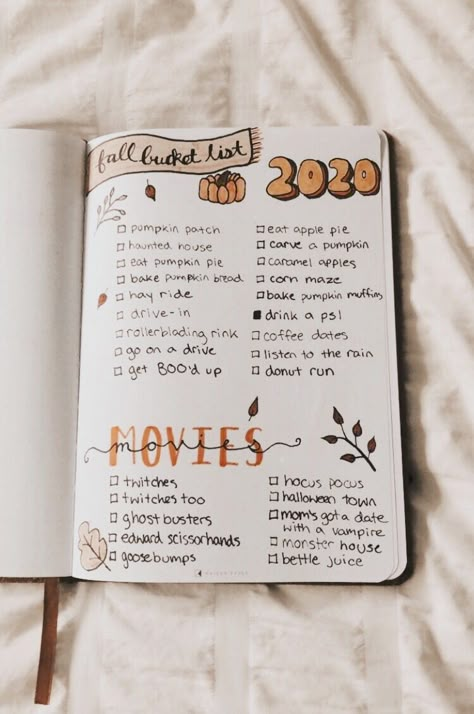 fall bucket list
2020
pumpkin patch
haunted house
eat pumpkin pie
bake pumpkin bread
hay ride
drive-in
rollerblading rink
go on a drive
get BOO'd up
eat apple pie
carve a pumpkin
caramel apples
corn maze
bake pumpkin muffins
drink a psl
coffee dates
listen to the rain
donut run
MOVIES
movies
twitches
twitches too
ghostbusters
edward scissorhands
goosebumps
hocus pocus
halloween town
mom's got a date
with a vampire
monster house
bettle juice